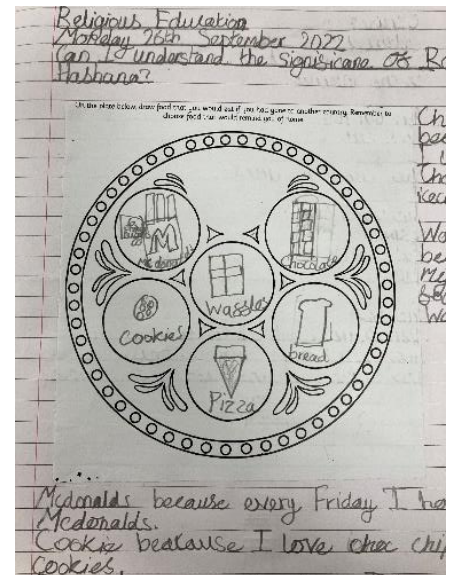 Religious Education
Monday 26th September 2022
Can I understand the Significane Of Ro
Hashana?
On the plate below, draw food that you would eat if you had gone to another country. Remember to
choose food that would remind you of home.
Ch
bec
I
Cho
Mcdonalds
Chocolate
Waffles
Wa
be
Cookies
bread
Pizza
Mcdonalds because every Friday I ha
Mcdonalds.
Cookie beacause I love choc chi
Cookies.